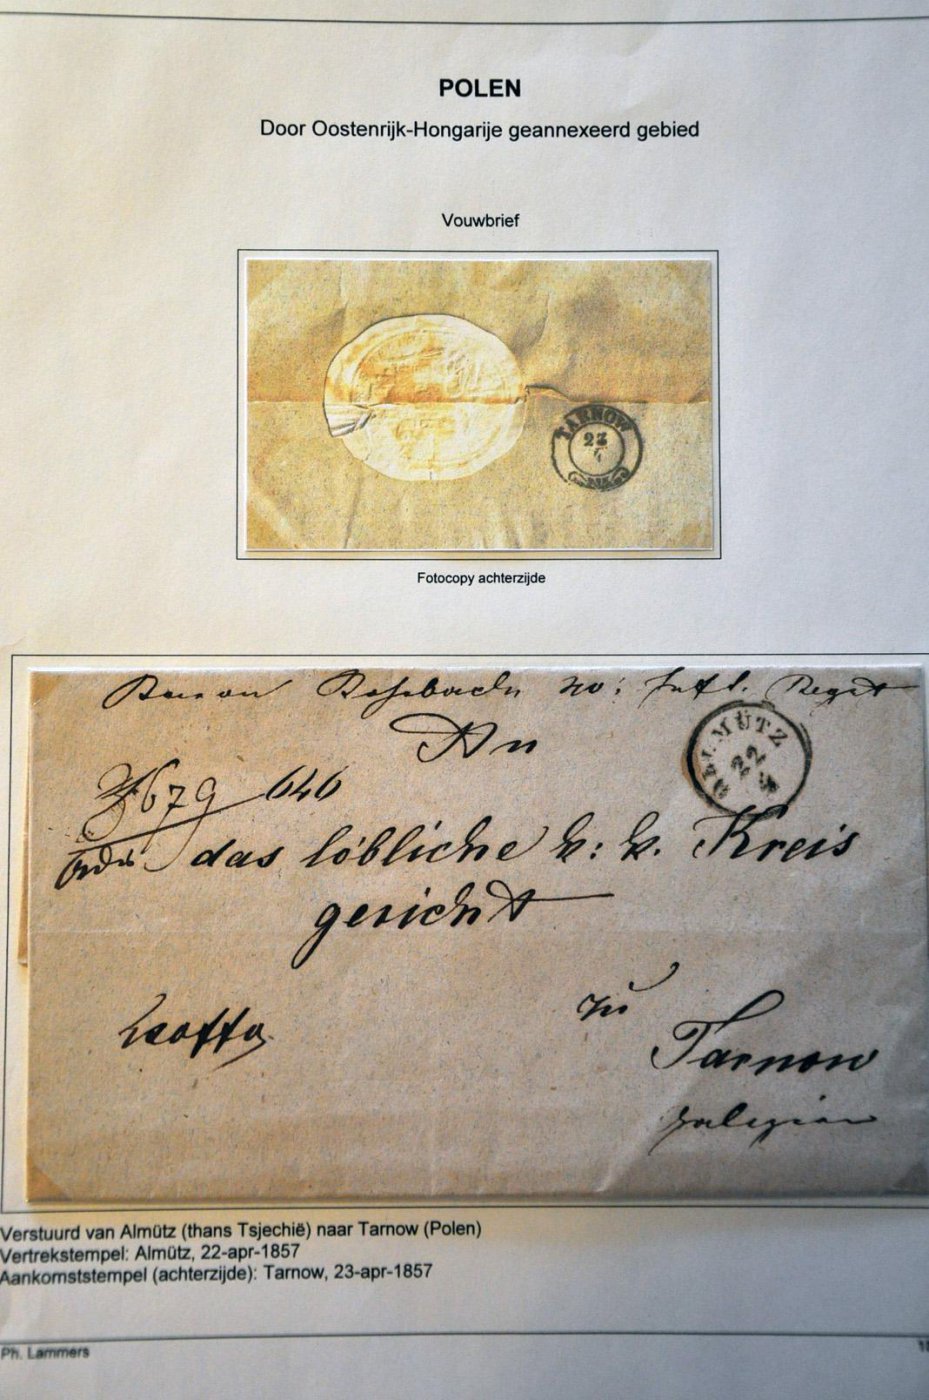 POLEN
Door Oostenrijk-Hongarije geannexeerd gebied
Vouwbrief
TARNOW
23
4
Fotocopy achterzijde
An
OLLMÜTZ
22
4
679 646
das löbliche k: k. Kreis
gericht
zu
Tarnow
Galizien
Verstuurd van Almütz (thans Tsjechië) naar Tarnow (Polen)
Vertrekstempel: Almütz, 22-apr-1857
Aankomststempel (achterzijde): Tarnow, 23-apr-1857
Ph. Lammers